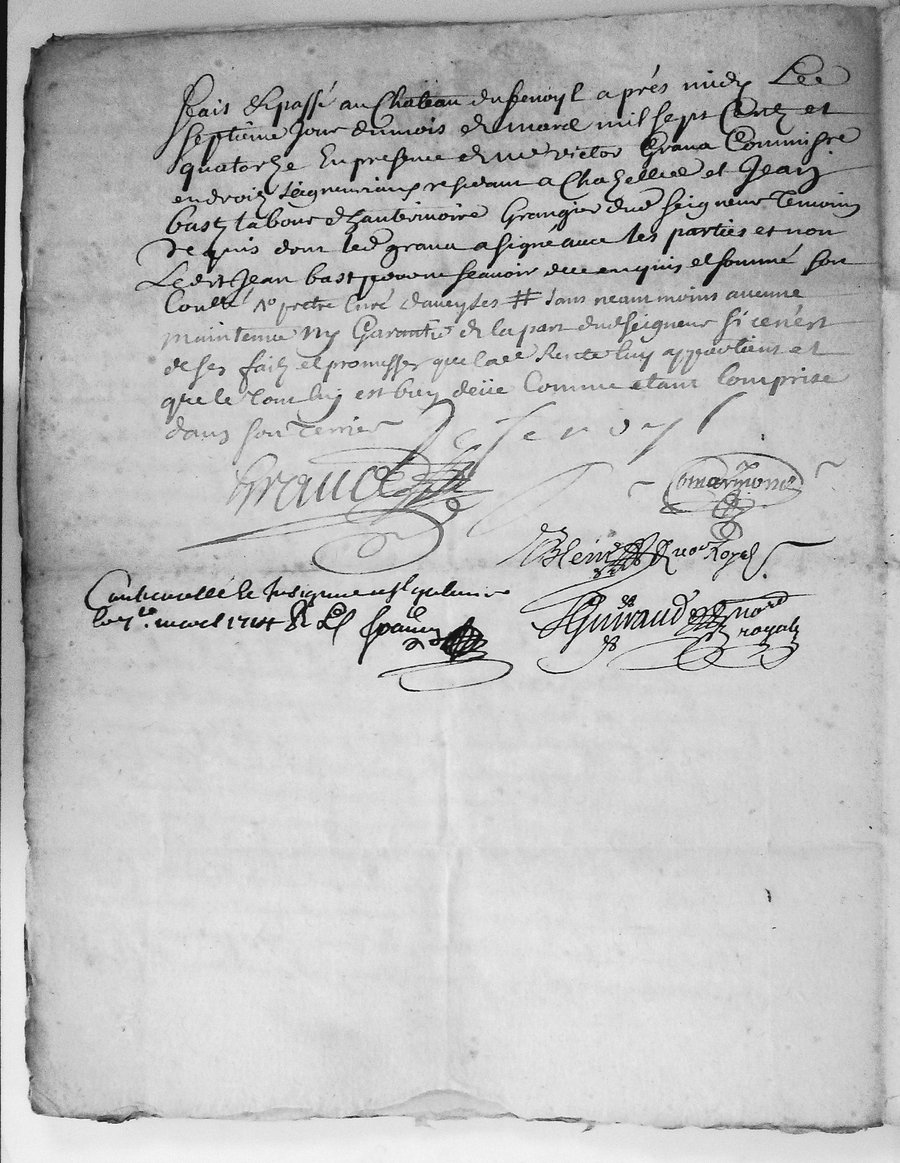 fait et passé au Château du fenoyl a prés midy Lee
septième Jour du mois de mard mil sept Centz et
quatorze En presence de me victor Grand Commissre
en droitz seigneuriaux residant a Chazelles et Jean
bast labour Grangier dud seigneur Temoins
Requis dont led grand a signé avec les parties et non
Ledit Jean bast pour ne scavoir de ce enquis et sommé son
Coulté pretre Curé daveyses # sans neammoins aucune
maintenue Ny Garantie de la part dud seigneur si ce nest
de ses faitz et promesses que lad Rente luy appartient et
que le tout luy est bien deüe Comme etant Comprise
dans son Terrier
fenoyl
Grand
Royal
Guiraud nore
royal
Controuollé le
le mars 1714